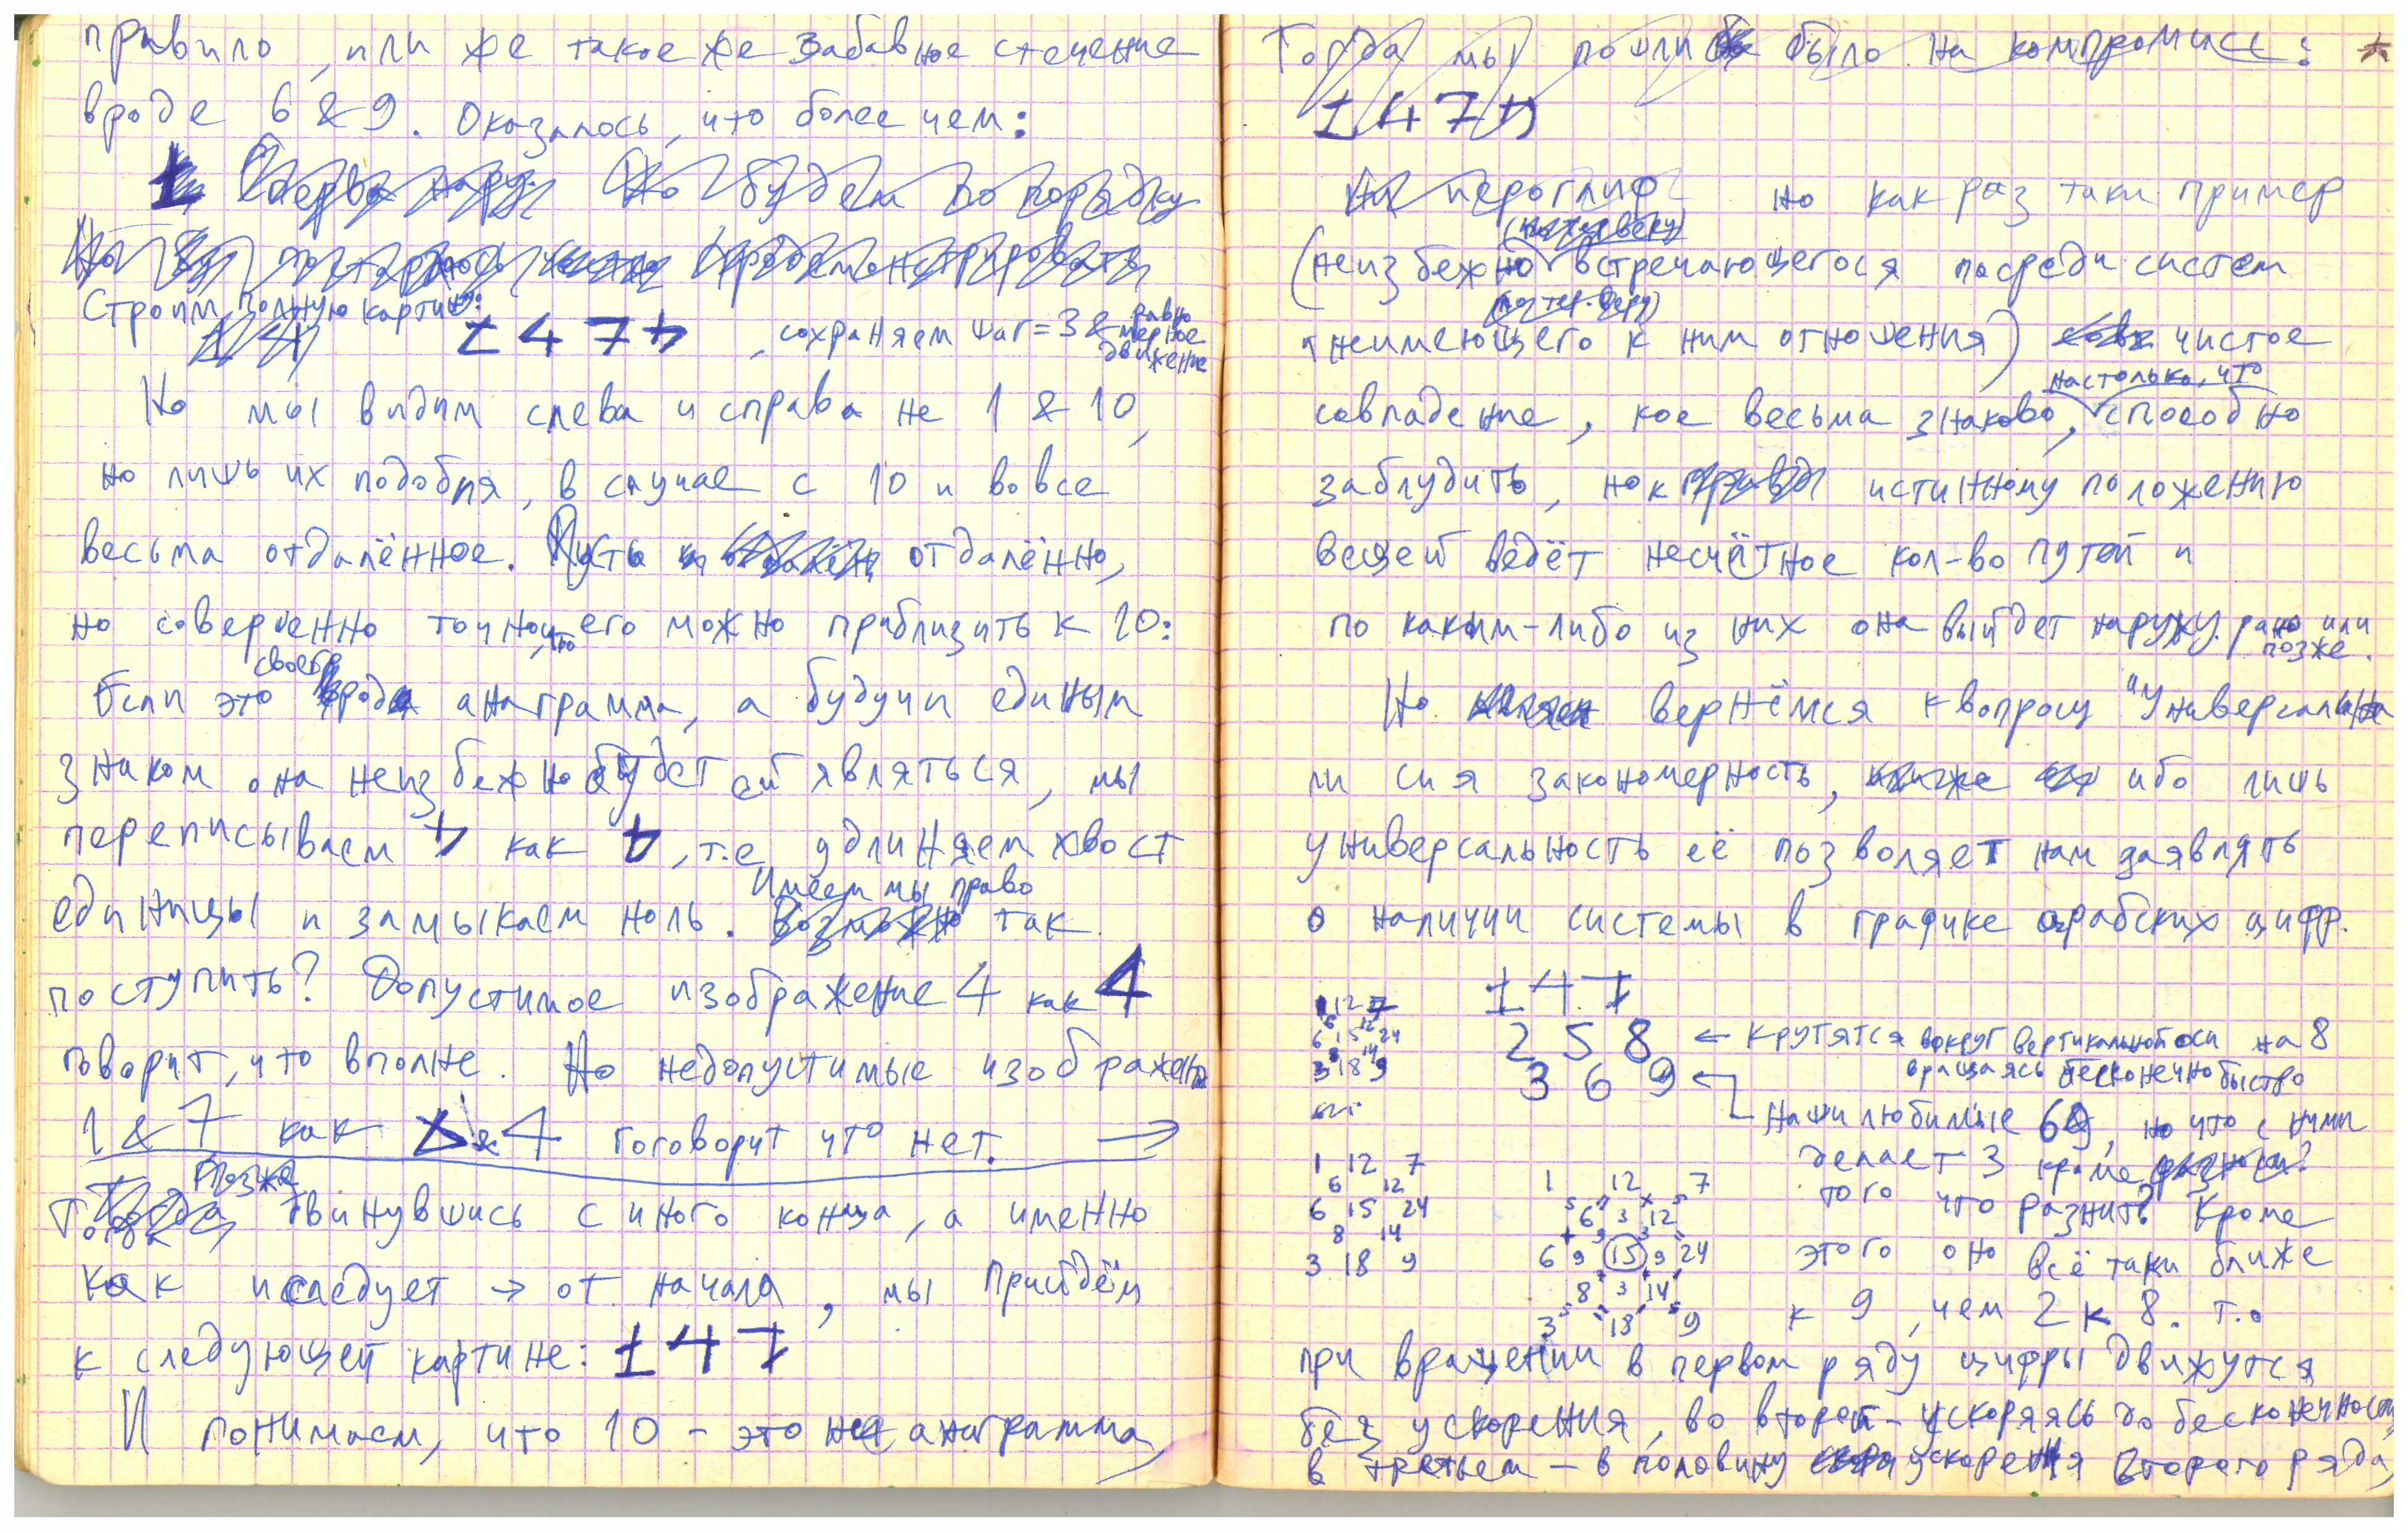 правило, или же такое же забавное стечение
вроде 6 & 9. Оказалось, что более чем:
1 Сперва Но будем по порядку
Но постараюсь продемонстрировать
Строим полную картину:
1 4 7 4, сохраняем шаг = 3 & равномерное движение
Но мы видим слева и справа не 1 & 10,
но лишь их подобия, в случае с 10 и вовсе
весьма отдалённое. Пусть и отдалённо,
но совершенно точно, что его можно приблизить к 10:
Если это своего рода анаграмма, а будучи единым
знаком она неизбежно будет ей являться, мы
переписываем 4 как 4, т.е. удлиняем хвост
единицы и замыкаем ноль. Возможно Имеем мы право так
поступить? Допустимое изображение 4 как 4
говорит, что вполне. Но недопустимые изображения
1 & 7 как & 4 говорит что нет. →
Тогда Позже двинувшись с иного конца, а именно
как и следует → от начала, мы прийдём
к следующей картине: 1 4 7
И понимаем, что 10 - это не анаграмма,
Тогда мы пошли было на компромисс: *
1 4 7
Ни иероглиф но как раз таки пример
(неизбежно встречающегося посреди систем
и неимеющего к ним отношения) чистое
совпадение, кое весьма знаково, настолько, что способно
заблудить, но к истинному положению
вещей ведёт несчётное кол-во путей и
по каким-либо из них она выйдет наружу рано или
позже.
Но вернёмся к вопросу "Универсальна
ли сия закономерность, ибо лишь
универсальность её позволяет нам заявлять
о наличии системы в графике арабских цифр.
1 12 7
6 12
6 15 24
8 14
3 18 9
1 4 7
2 5 8 ← крутятся вокруг вертикальной оси на 8
вращаясь бесконечно быстро
3 6 9 ← Наши любимые 6 9, но что с ними
делает 3 кроме
того что разнит? Кроме
этого оно всё таки ближе
к 9, чем 2 к 8. т.о
1 12 7
6 12
6 15 24
8 14
3 18 9
1 12 7
6 3 12
6 9 15 9 24
8 3 14
3 18 9
при вращении в первом ряду цифры движутся
без ускорения, во второй - ускоряясь до бесконечности,
в третьем - в половину ускорения второго ряда,